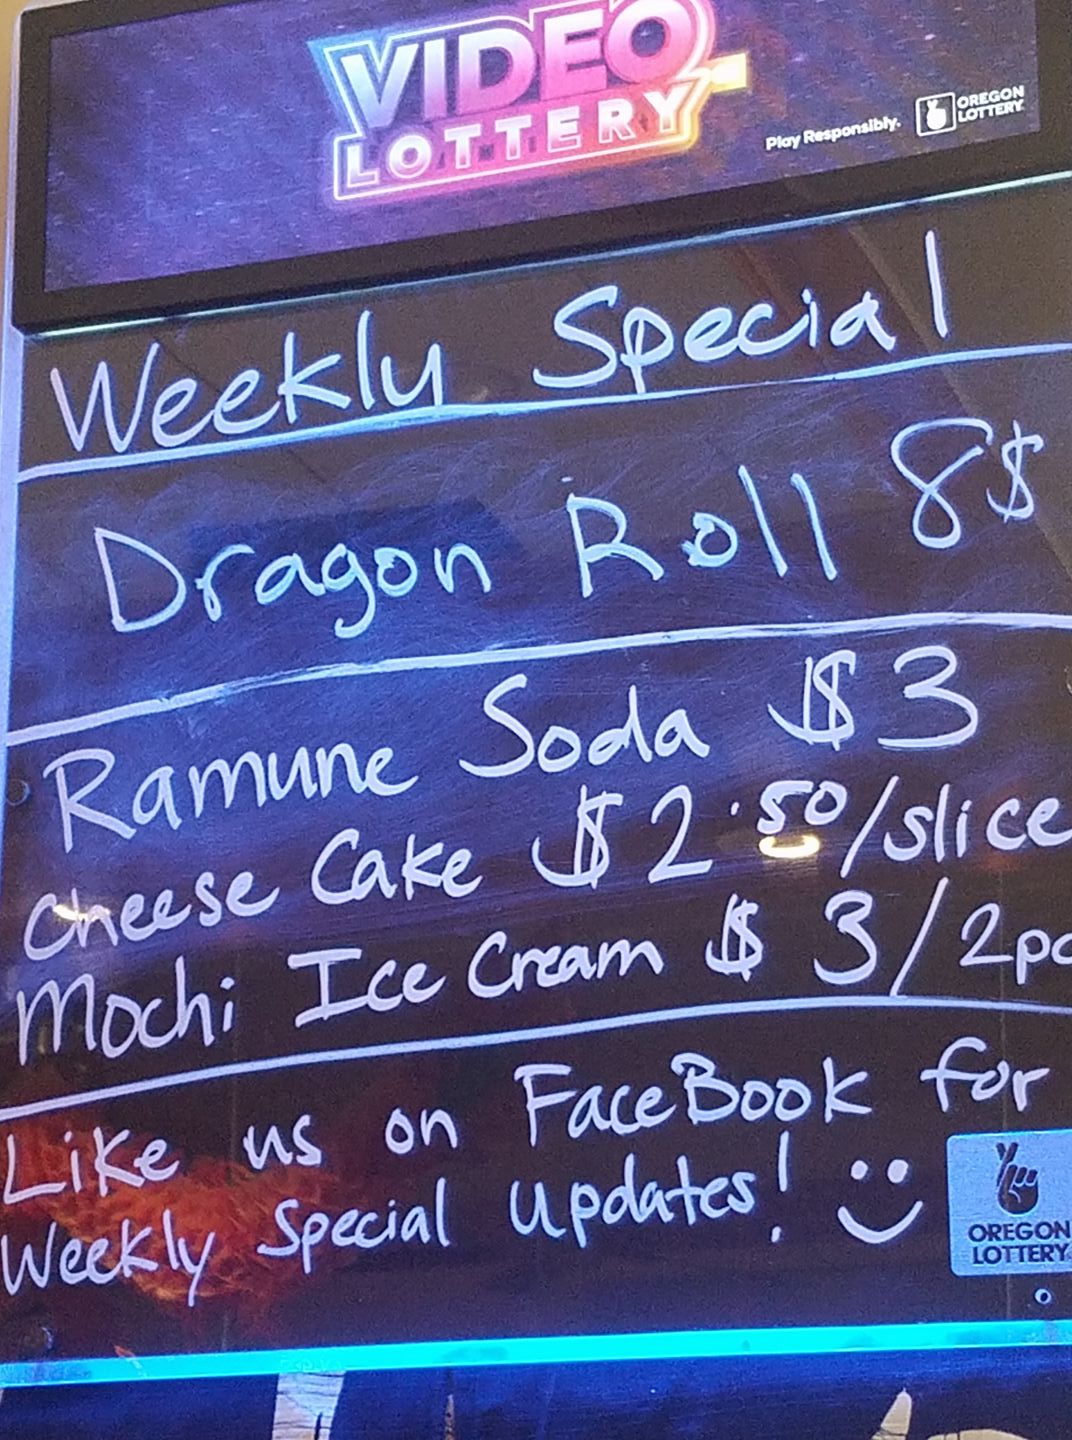 VIDEO
LOTTERY
Play Responsibly.
OREGON
LOTTERY
Weekly Special
Dragon Roll 8$
Ramune Soda $3
Cheese Cake $2.50/slice
Mochi Ice Cream $3/2pc
Like us on FaceBook for
Weekly Special Updates!
OREGON
LOTTERY